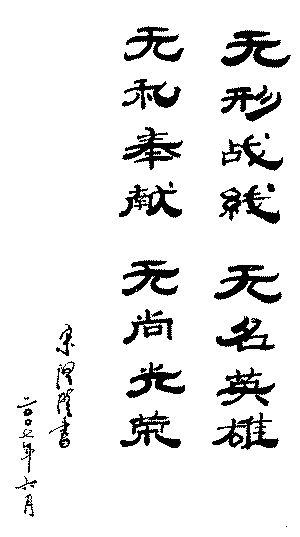 无形战线 无名英雄
无私奉献 无尚光荣
书
二〇〇七年六月